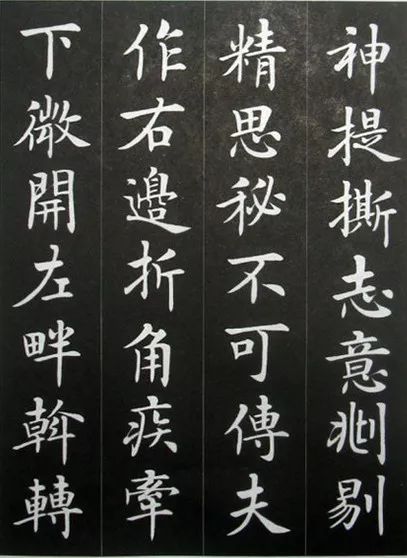 神提撕志意剔
精思秘不可傳夫
作右邊折角疾牽
下微開左畔斡轉